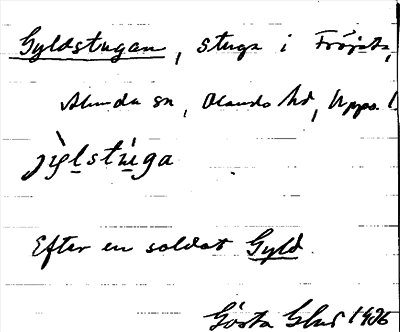 Gyldstugan, stuga i Fröjsta,
Alunda sn, Olands hd, Upps. l.
jy̍lstu̍ga
Efter en soldat Gyld.
Gösta